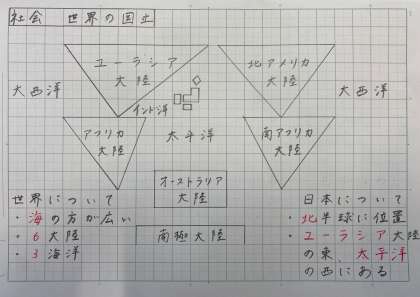 社会 世界の国立
ユーラシア
大陸
北アメリカ
大陸
大西洋
大西洋
インド洋
アフリカ
大陸
太平洋
南アフリカ
大陸
オーストラリア
大陸
南極大陸
世界について
・海の方が広い
・6大陸
・3海洋
日本について
・北半球に位置
・ユーラシア大陸
の東、太平洋
の西にある